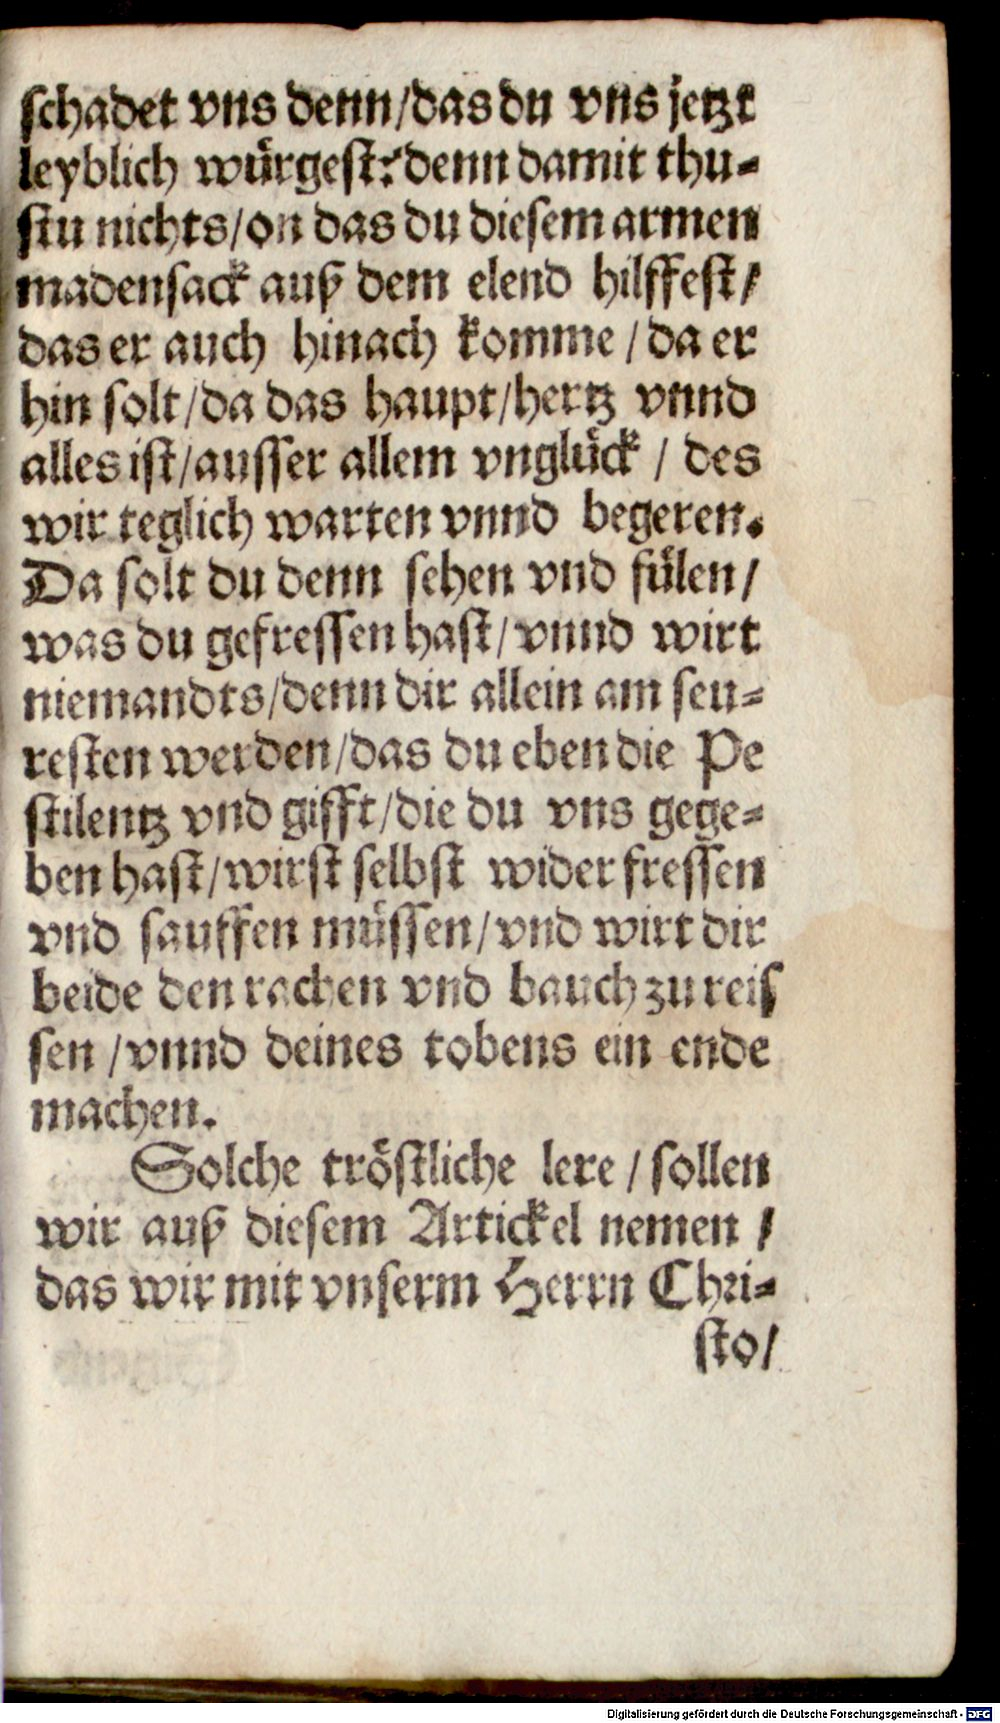 schadet vns denn/das du vns jetzt
leyblich würgest? denn damit thu-
stu nichts/on das du diesem armen
madensack auß dem elend hilffest/
das er auch hinach komme / da er
hin solt/da das haupt/hertz vnnd
alles ist/ausser allem vnglück / des
wir teglich warten vnnd begeren.
Da solt du denn sehen vnd fülen/
was du gefressen hast/vnnd wirt
niemandts/denn dir allein am seu-
resten werden/das du eben die Pe
stilentz vnd gifft/die du vns gege-
ben hast/wirst selbst wider fressen
vnd sauffen müssen/vnd wirt dir
beide den rachen vnd bauch zu reis
sen /vnnd deines tobens ein ende
machen.
Solche tröstliche lere / sollen
wir auß diesem Artickel nemen /
das wir mit vnserm Herrn Chri-
sto/
Digitalisierung gefördert durch die Deutsche Forschungsgemeinschaft - DFG